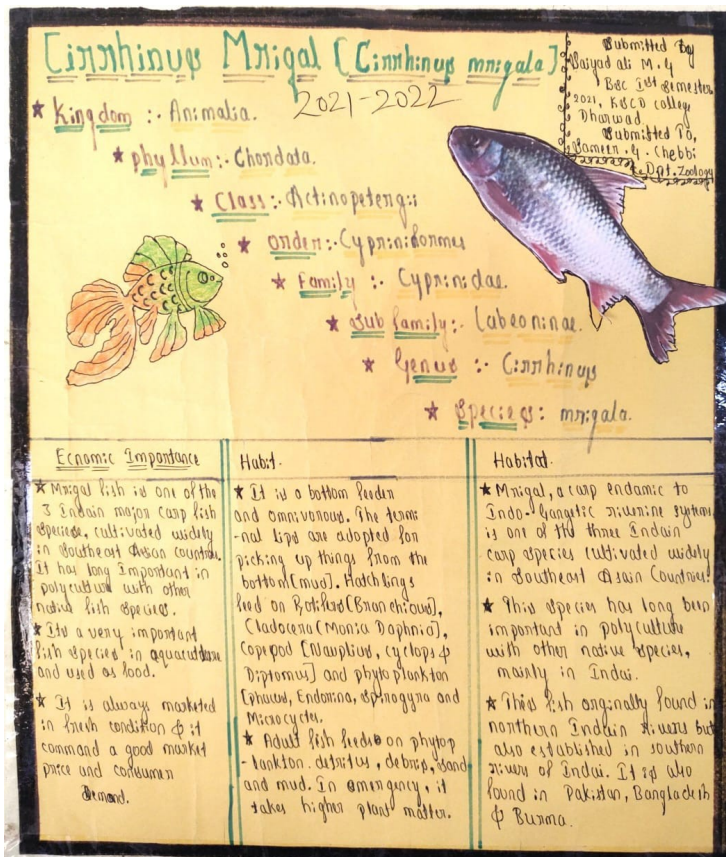 Cirrhinus Mrigal [Cirrhinus mrigala]
2021-2022
Submitted by
Saiyad ali M.G
BSc Ist Semester
2021, KSCD college
Dharwad.
Submitted To,
Sameer.G.Chebbi
Dpt.Zoology
★ Kingdom :- Animalia.
★ phyllum:- Chondata.
★ Class:- Actinopetengii
★ Order:- Cypriniformes
★ Family :- Cyprinidae.
★ Sub family:- Labeoninae.
★ Genus :- Cirrhinus
★ Species: mrigala.
Ecnomic Importance
★ Mrigal fish is one of the
3 Indain major carp fish
speciese, cultivated widely
in Southeast Asian countries.
It has long Important in
polyculture with other
native fish species.
★ Its a very important
fish species in aquaculture
and used as food.
★ It is always marketed
in fresh condition & it
command a good market
price and consumer
Demand.
Habit.
★ It is a bottom feeder
and omnivorous. The termi
-nal lips are adopted for
picking up things from the
bottom[mud]. Hatchlings
feed on Rotifers[Branchious],
Cladocera[Monia Daphnia],
Copepod [Nauplius, cyclops &
Diptomus] and phytoplankton
[phacus, Endorina, spirogyra and
Microcycles.
★ Adult fish feeds on phytop
-lankton. detritus, debris, sand
and mud. In emergency, it
takes higher plant matter.
Habitat.
★ Mrigal, a carp endamic to
Indo-Gangetic riverine systems
is one of the three Indain
carp species cultivated widely
in Southeast Asain Countries.
★ This species has long been
important in polyculture
with other native species,
mainly in Indai.
★ This fish originally found in
northern Indain rivers but
also established in southern
rivers of Indai. It is also
found in Pakistan, Bangladesh
& Burma.